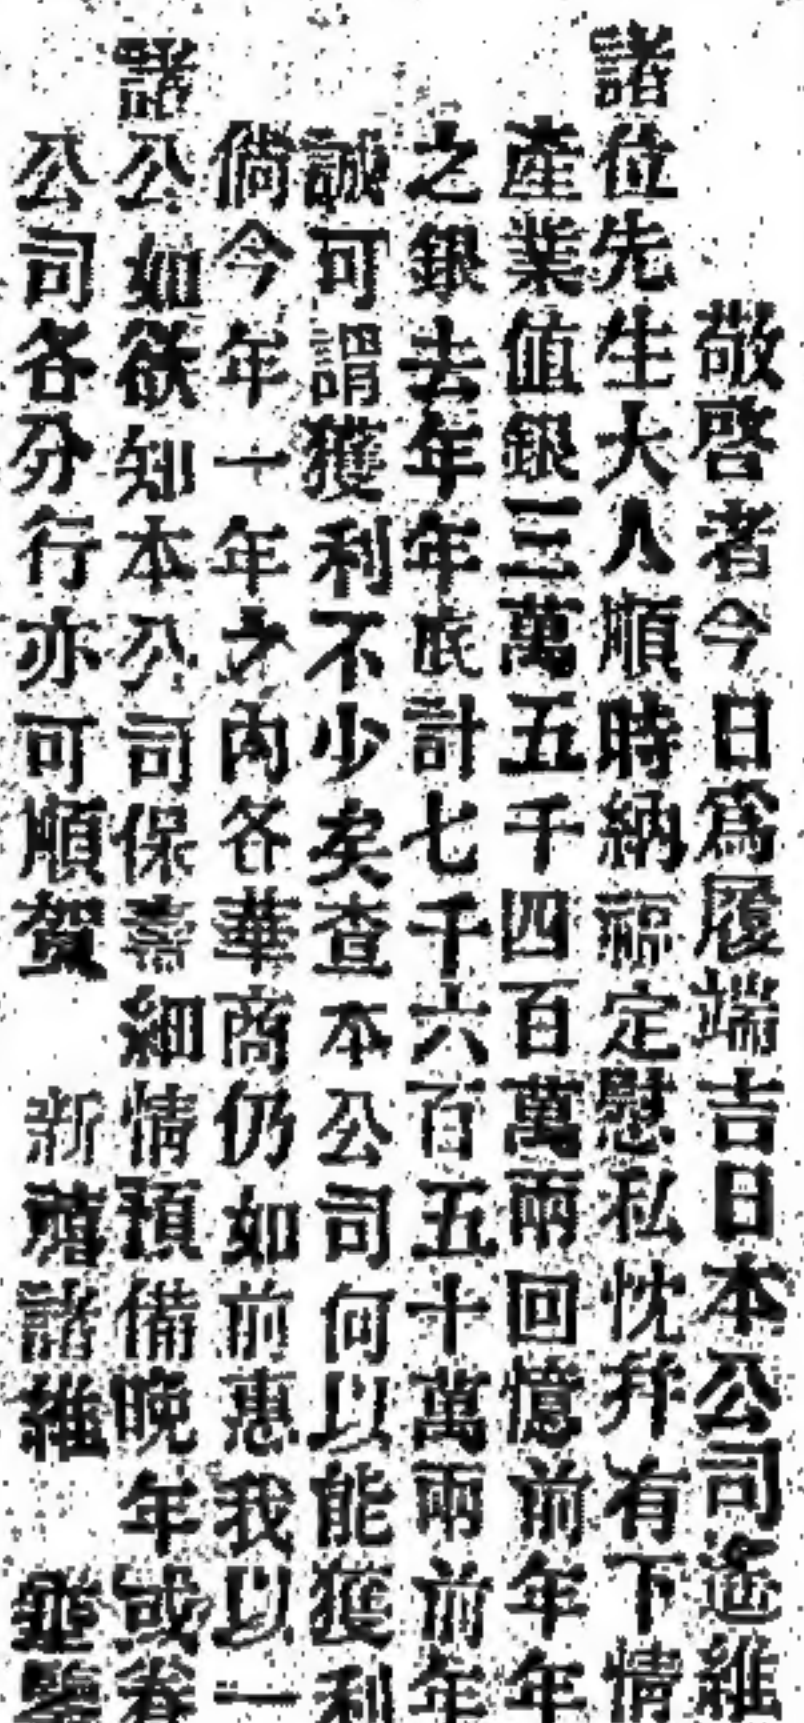 敬啓者今日爲履端吉日本公司遙維
諸位先生大人順時納福定慰私忱幷有下情
產業值銀三萬五千四百萬兩回憶前年年
之銀去年年底計七千六百五十萬兩前年
誠可謂獲利不少矣查本公司何以能獲利
倘今年一年之內各華商仍如前惠我以一
諸公如欲知本公司保壽細情預備晚年或眷
公司各分行亦可順賀 新禧諸維 垂鑒